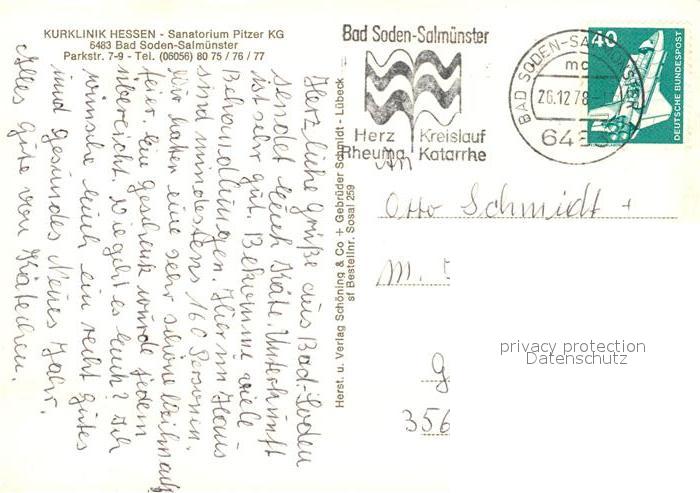 KURKLINIK HESSEN - Sanatorium Pitzer KG
6483 Bad Soden-Salmünster
Parkstr. 7-9 - Tel. (06056) 80 75 / 76 / 77
Herzliche Grüße aus Bad-Soden
sendet euch Käte. Unterkunft
ist sehr gut. Bekomme viele
Behandlungen. Hier im Haus
sind mindestens 160 Personen.
Wir hatten eine sehr schöne Weihnach
feier, ein Geschenk wurde jedem
überreicht. Wie geht es euch? Ich
wünsche euch ein recht gutes
und gesundes Neues Jahr.
Alles gute von Kätchen.
Herst. u. Verlag Schöning & Co + Gebrüder Schmidt - Lübeck
sf Bestellnr. Sosal 259
Bad Soden-Salmünster
Herz Kreislauf
Rheuma Katarrhe
BAD SODEN-SALMÜNSTER
mc
26.12.78
648
40
DEUTSCHE BUNDESPOST
An
Otto Schmidt +
M.
G
356
privacy protection
Datenschutz